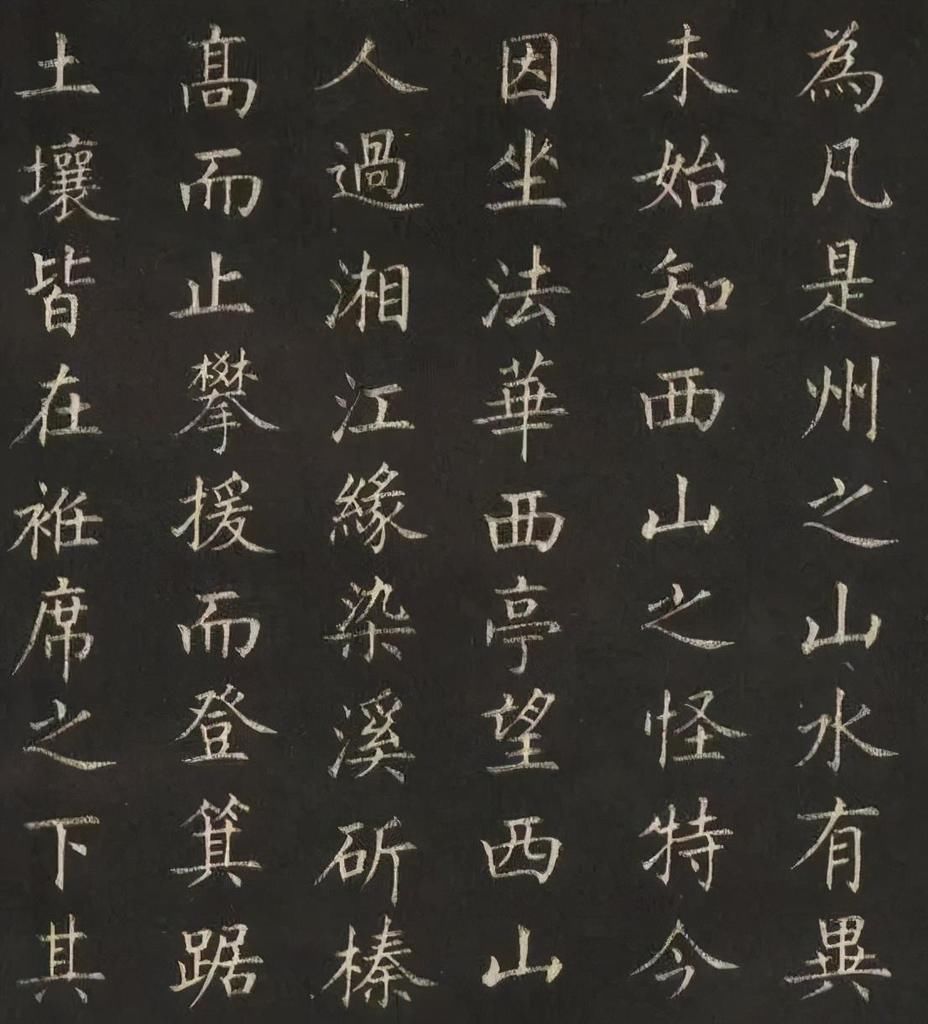 為凡是州之山水有異
未始知西山之怪特今
因坐法華西亭望西山
人過湘江緣染溪斫榛
髙而止攀援而登箕踞
土壤皆在袵席之下其